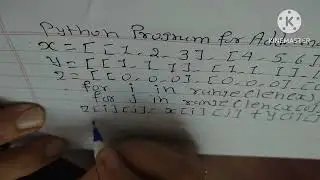 Python Program for Ad
x = [[1,2,3], [4,5,6]
y = [[1,1,1], [1,1,1]
z = [[0,0,0], [0,0,0], [0
for i in range(len(x)
for j in range(len(x[0
z[i][j] = x[i][j] + y[i][j
KINEMASTER